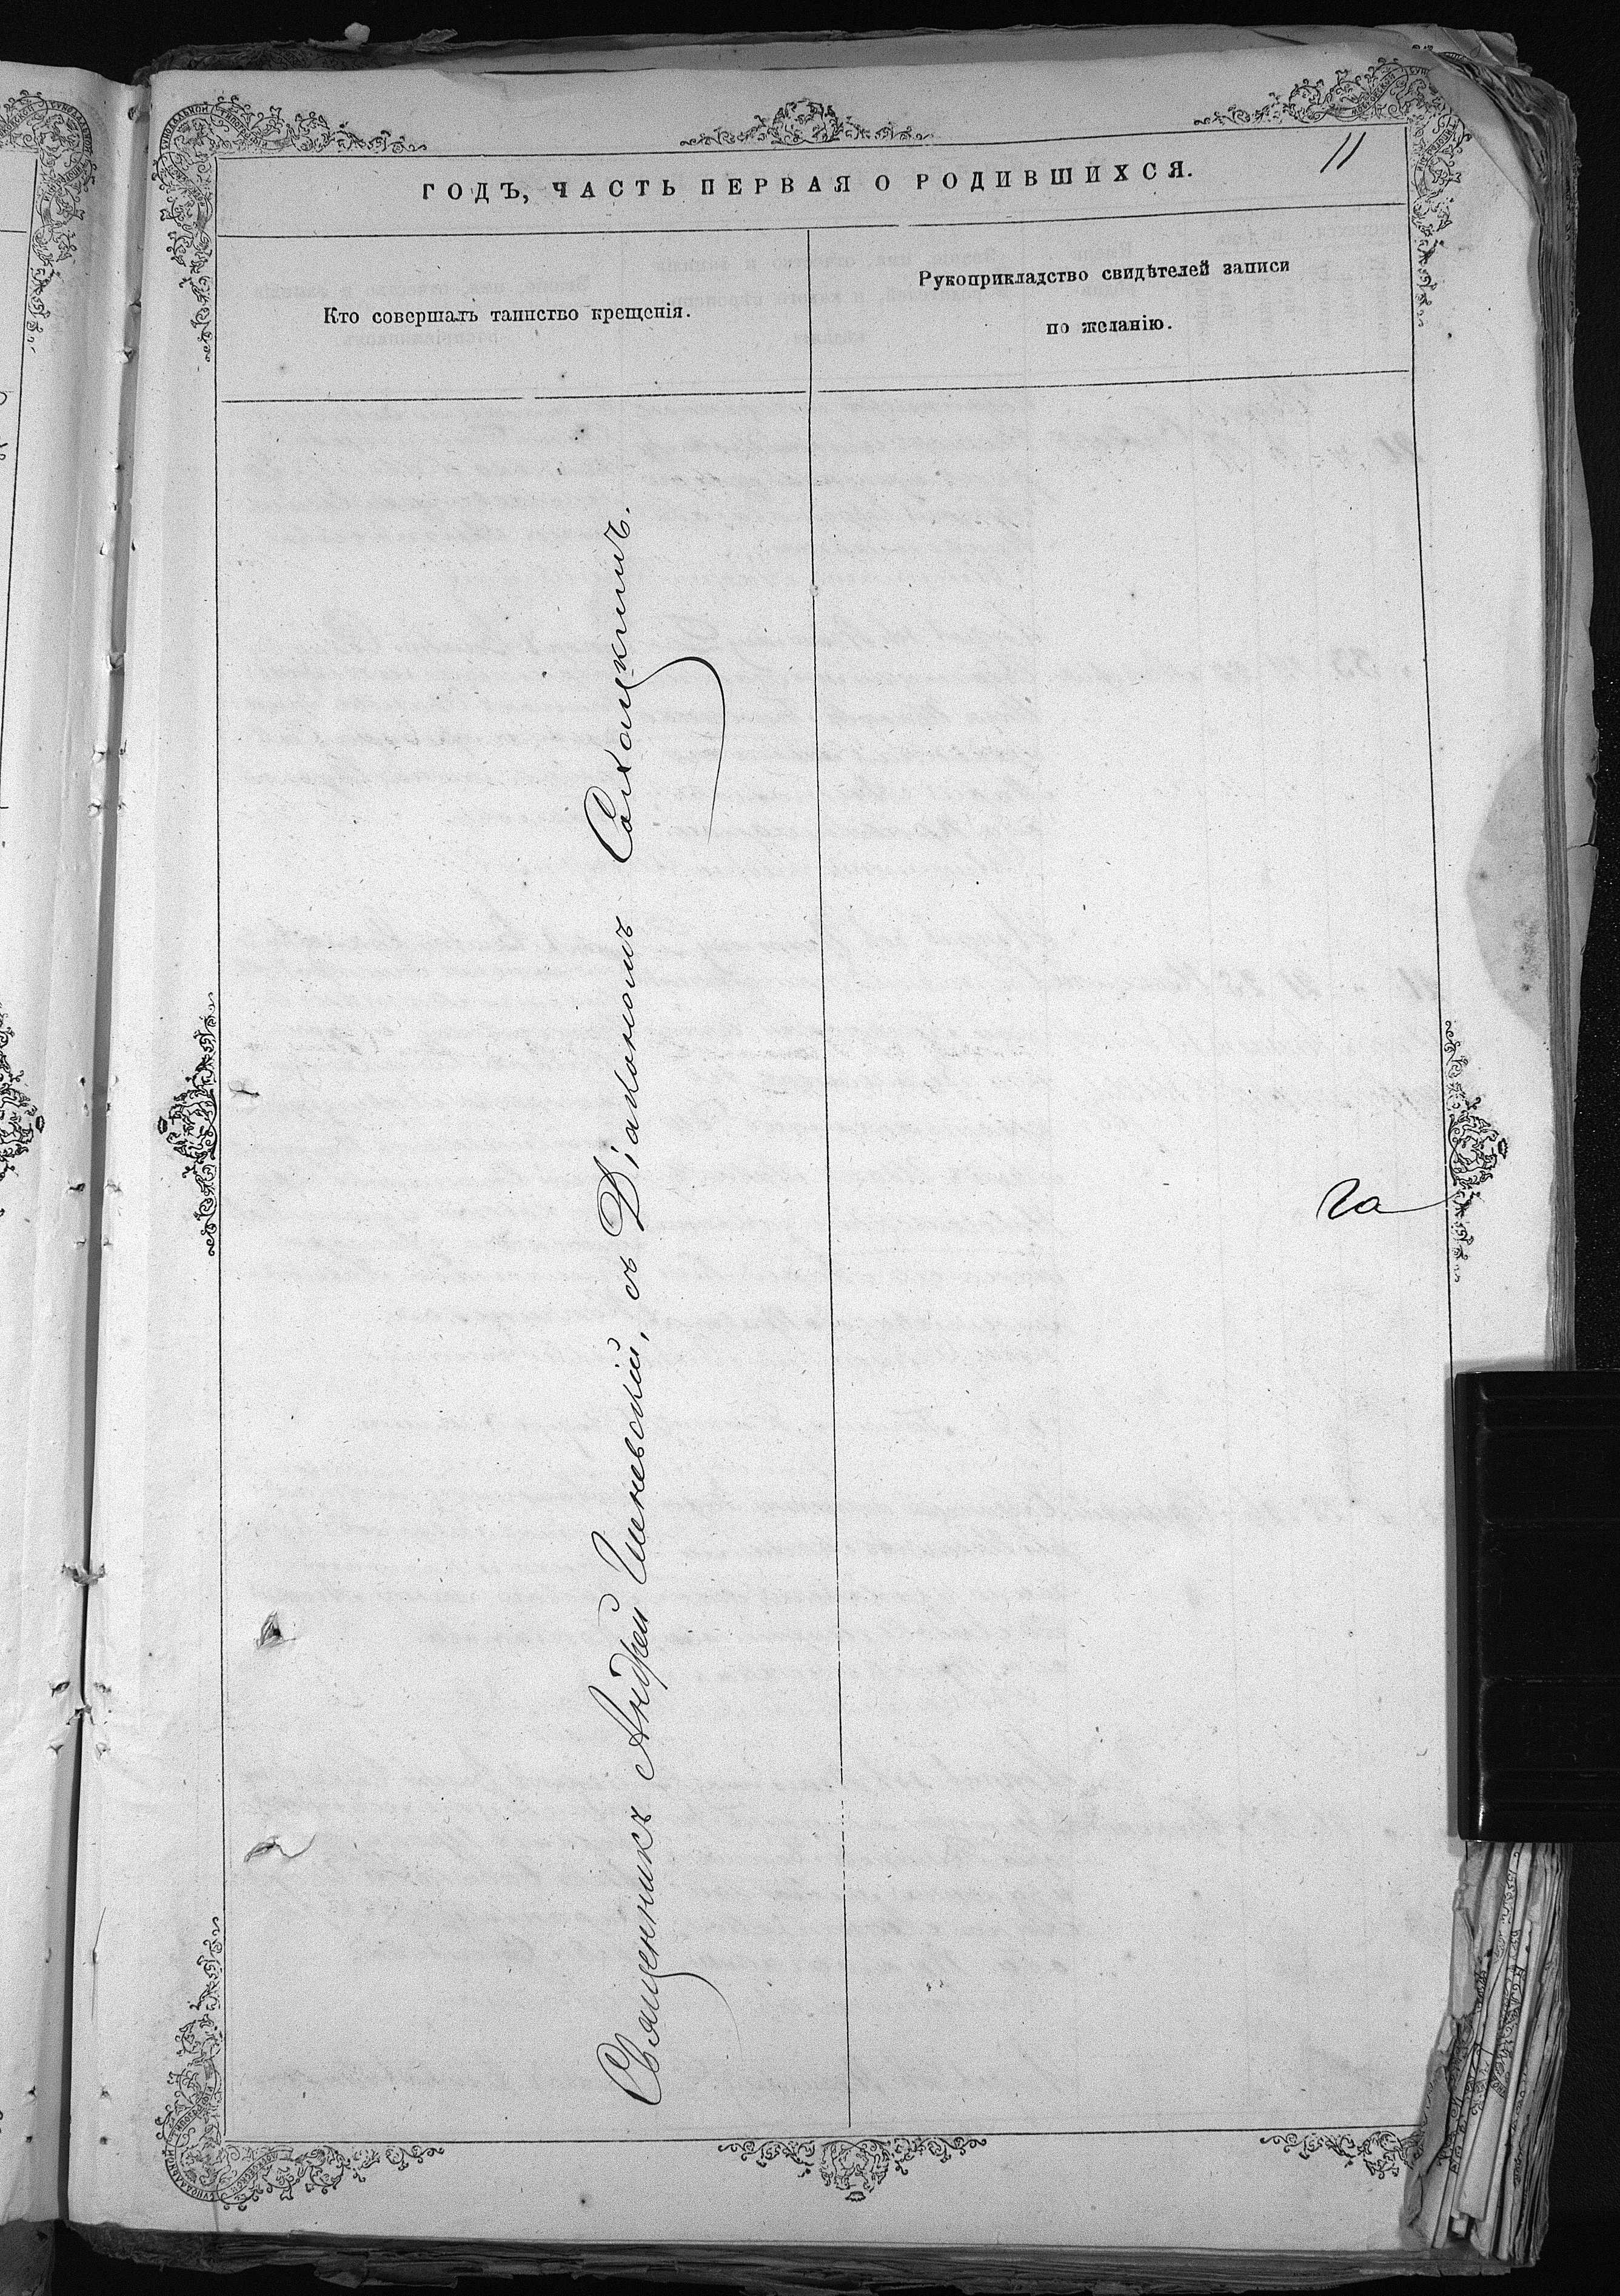 11
ГОДЪ, ЧАСТЬ ПЕРВАЯ О РОДИВШИХСЯ.
Кто совершалъ таинство крещенія.
Рукоприкладство свидѣтелей записи
по желанію.
Священникъ Андрей съ Діакономъ
га